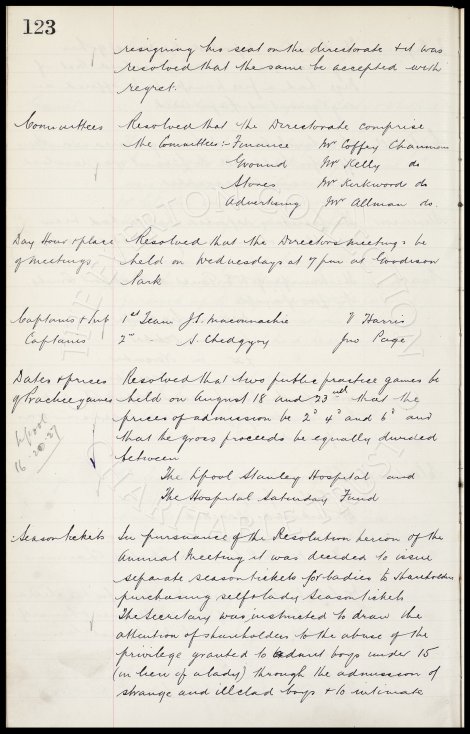 123
resigning his seat on the directorate & it was
resolved that the same be accepted with
regret.
Committees Resolved that the Directorate comprise
the Committees:- Finance Mr Coffey Chairman
Ground Mr Kelly do
Stores Mr Kirkwood do
Advertising Mr Allman do.
Day Hour & place Resolved that the Directors meetings be
of meetings held on Wednesdays at 7 pm at Goodison
Park
Captains & Sub 1st Team J.S. Maconnachie V Harris
Captains 2nd S. Chedgzoy Jno Page
Dates & prices Resolved that two public practice games be
of Practice games held on August 18 and 23rd that the
prices of admission be 2d 4d and 6d and
L'pool that the gross proceeds be equally divided
16 - 20 - 27 between
The L'pool Stanley Hospital and
The Hospital Saturday Fund
Season tickets In pursuance of the Resolution hereon of the
Annual Meeting it was decided to issue
separate season tickets for Ladies to shareholders
purchasing self & lady season tickets
The Secretary was instructed to draw the
attention of shareholders to the abuse of the
privilege granted to admit boys under 15
(in lieu of a lady) through the admission of
strange and illclad boys & to intimate